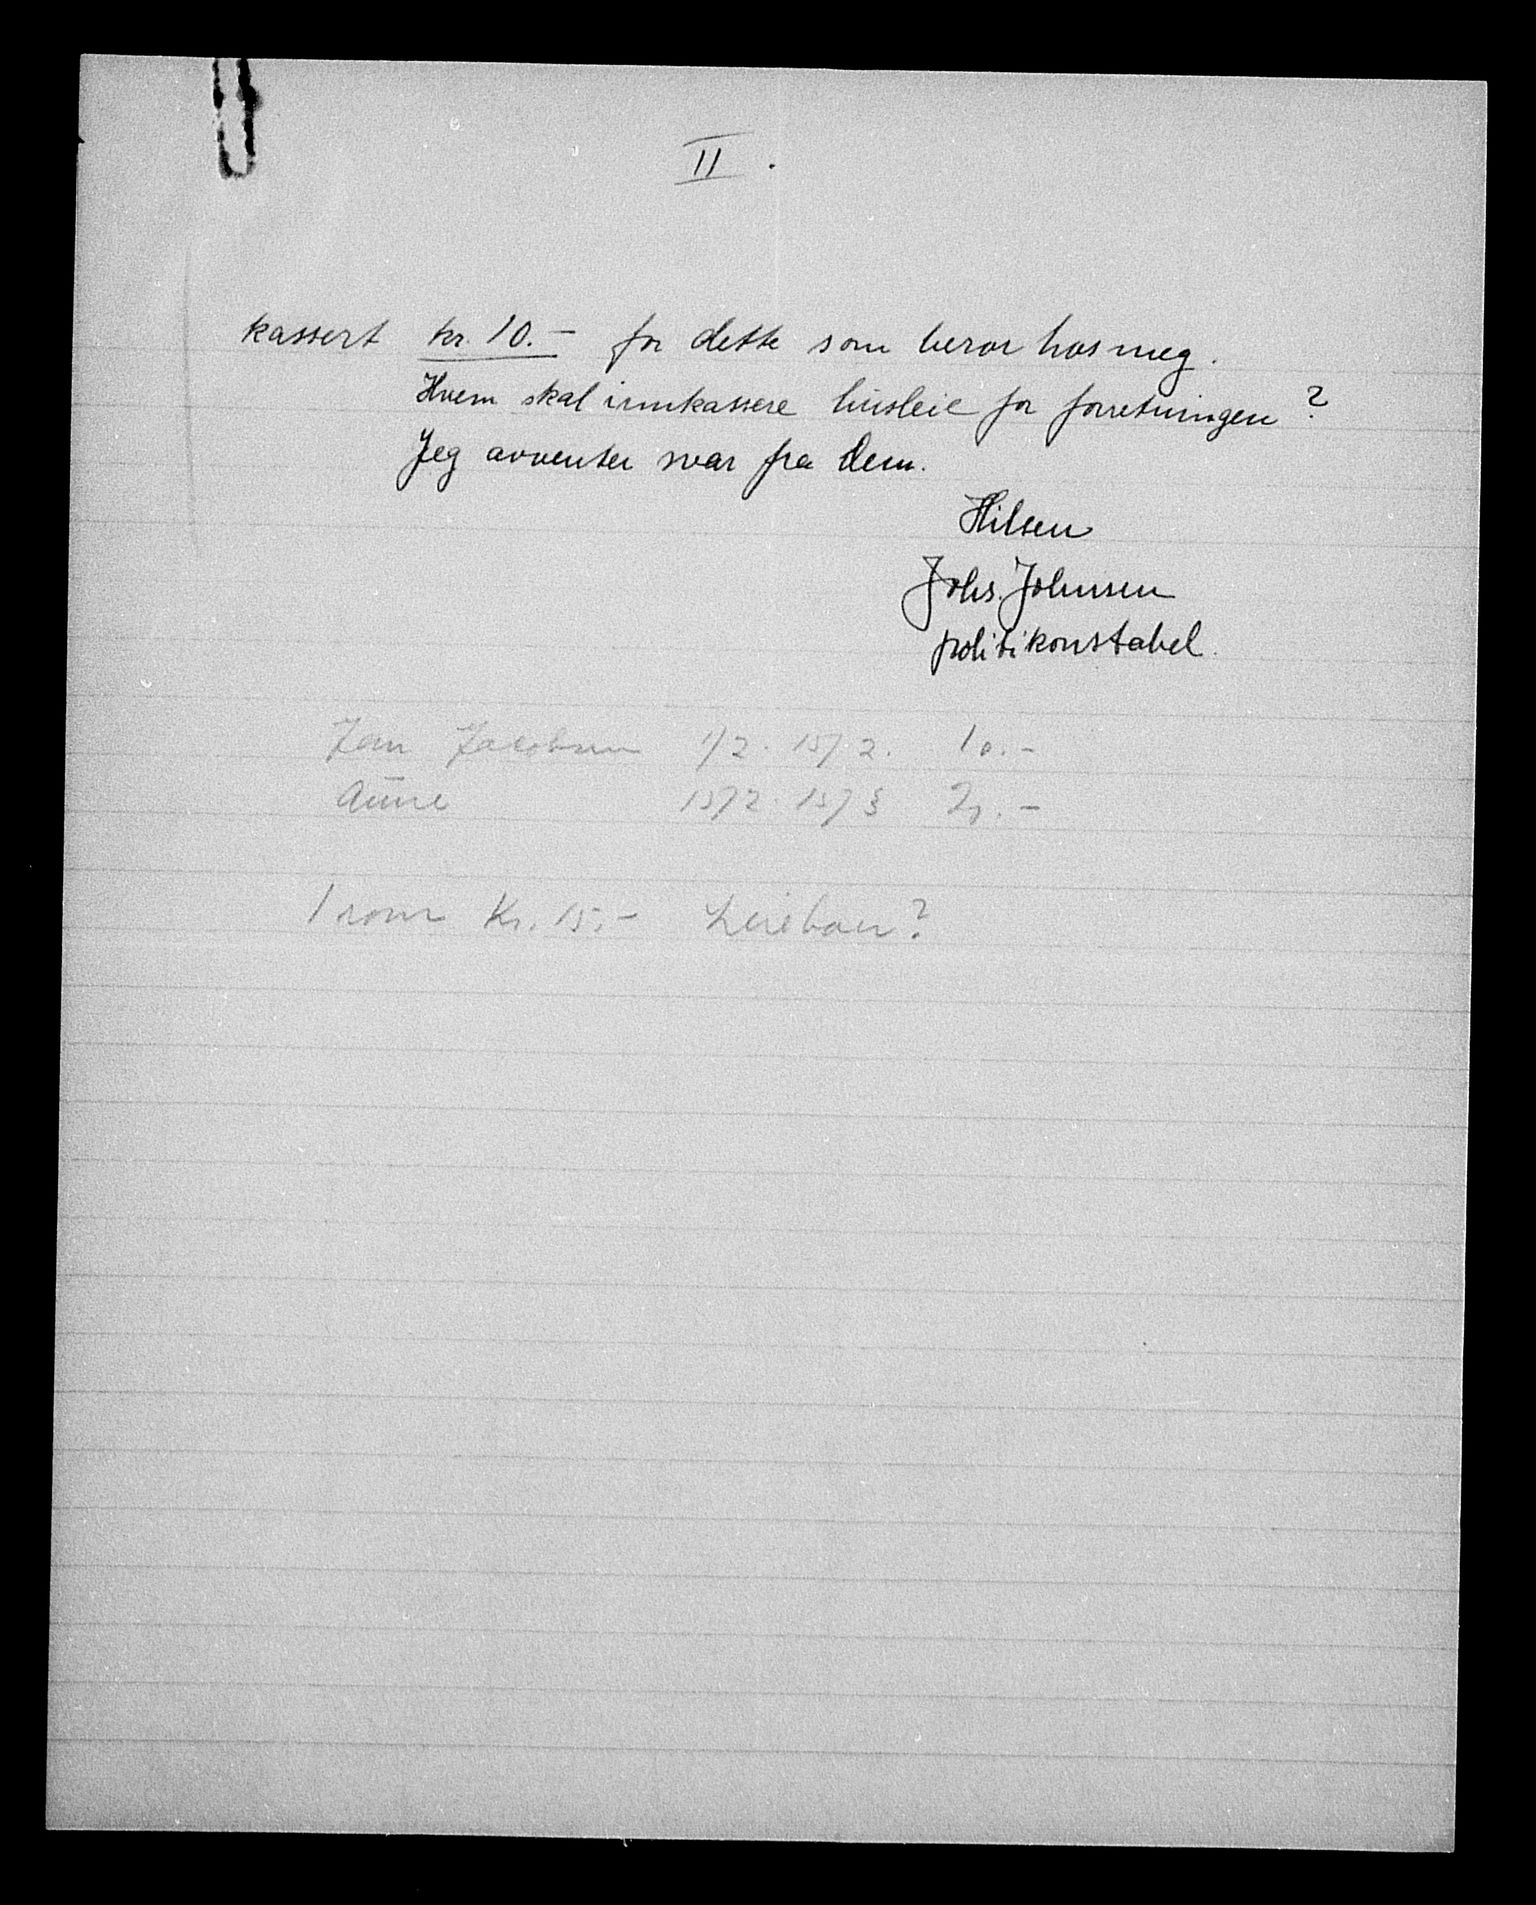 II .
kassert kr. 10.- for dette som beror hos meg.
Hvem skal innkassere husleie for forretningen ?
Jeg avventer svar fra Dem.
Hilsen
Johs. Johnsen
politikonstabel.
Jan Jacobsen 1/2 . 15/2. 10.-
Aune 15/2 . 15/3
1 rom Kr. 15,-